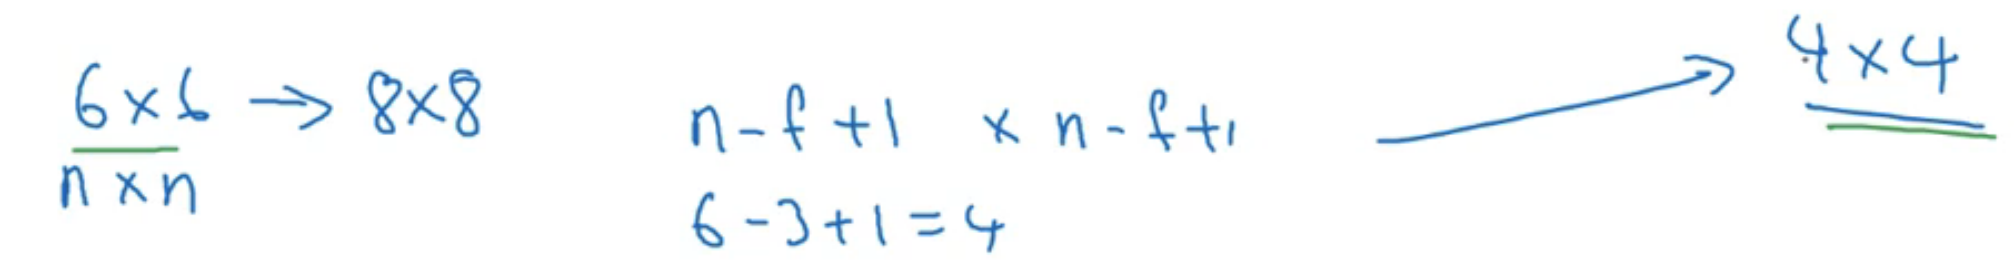 6 × 6 → 8 × 8
n × n
n - f + 1 × n - f + 1
6 - 3 + 1 = 4
4 × 4